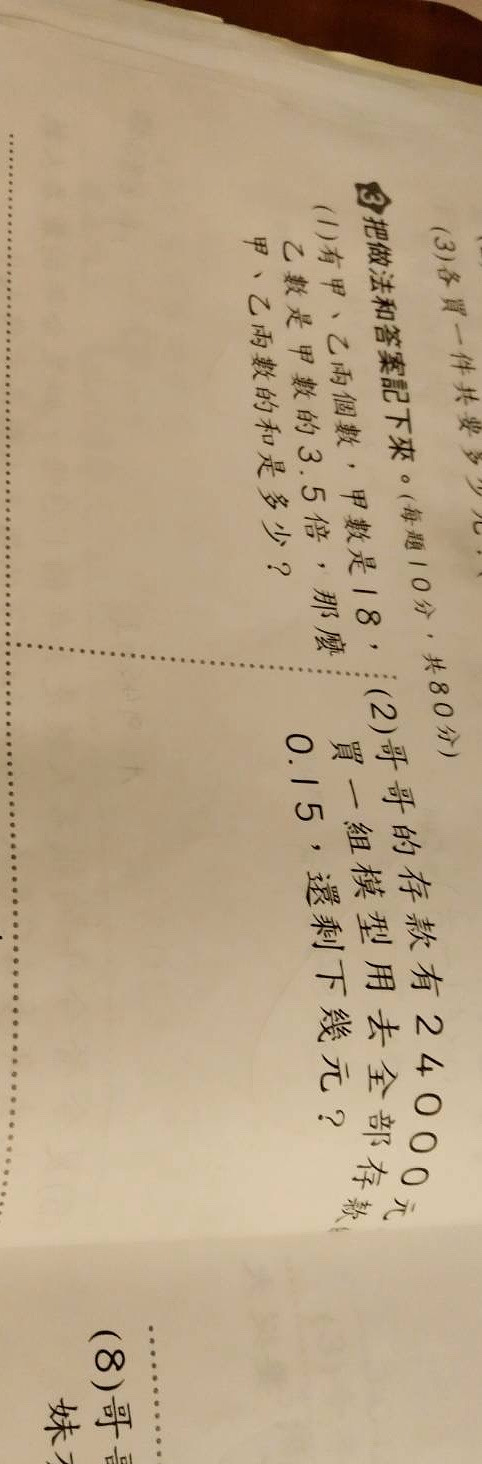 (3)各買一件共要多少元？
3 把做法和答案記下來。(每題10分，共80分)
(1)有甲、乙兩個數，甲數是18，
乙數是甲數的3.5倍，那麼
甲、乙兩數的和是多少？
(2)哥哥的存款有24000元
買一組模型用去全部存款
0.15，還剩下幾元？
(8)哥
妹